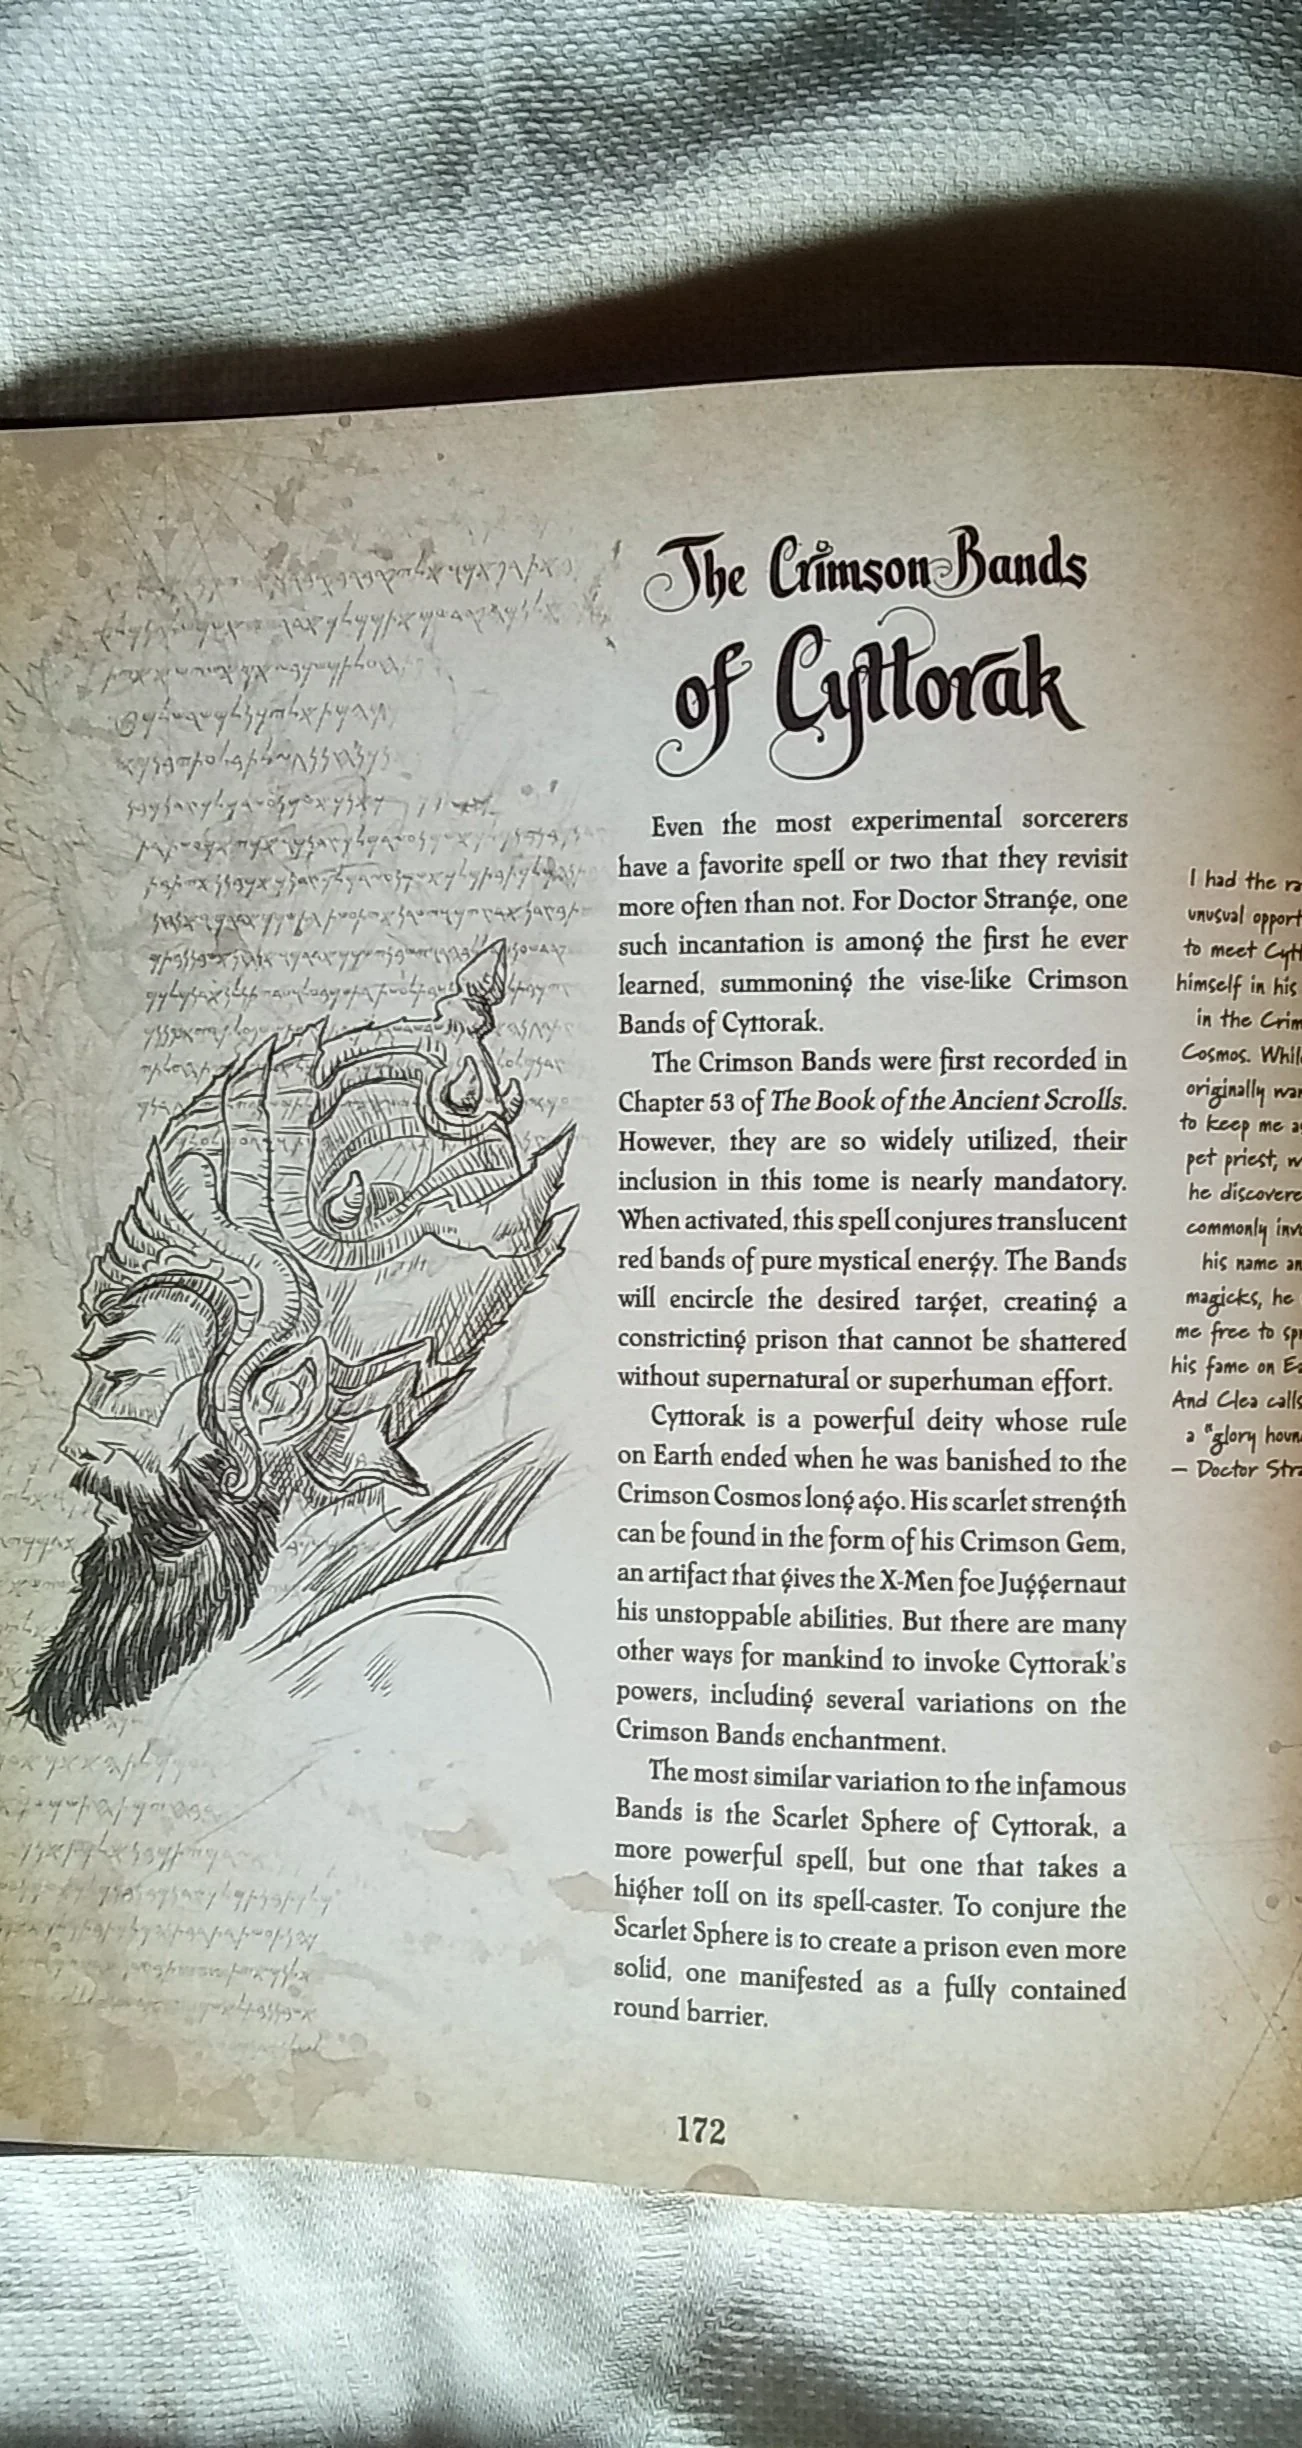 The Crimson Bands
of Cyttorak
Even the most experimental sorcerers
have a favorite spell or two that they revisit
more often than not. For Doctor Strange, one
such incantation is among the first he ever
learned, summoning the vise-like Crimson
Bands of Cyttorak.
The Crimson Bands were first recorded in
Chapter 53 of The Book of the Ancient Scrolls.
However, they are so widely utilized, their
inclusion in this tome is nearly mandatory.
When activated, this spell conjures translucent
red bands of pure mystical energy. The Bands
will encircle the desired target, creating a
constricting prison that cannot be shattered
without supernatural or superhuman effort.
Cyttorak is a powerful deity whose rule
on Earth ended when he was banished to the
Crimson Cosmos long ago. His scarlet strength
can be found in the form of his Crimson Gem,
an artifact that gives the X-Men foe Juggernaut
his unstoppable abilities. But there are many
other ways for mankind to invoke Cyttorak's
powers, including several variations on the
Crimson Bands enchantment.
The most similar variation to the infamous
Bands is the Scarlet Sphere of Cyttorak, a
more powerful spell, but one that takes a
higher toll on its spell-caster. To conjure the
Scarlet Sphere is to create a prison even more
solid, one manifested as a fully contained
round barrier.
172
I had the
unusual
to meet
himself in his
in the
Cosmos.
originally
to keep me
pet priest,
he
commonly
his name
magicks, he
me free to
his fame on
And Clea
a "glory
— Doctor